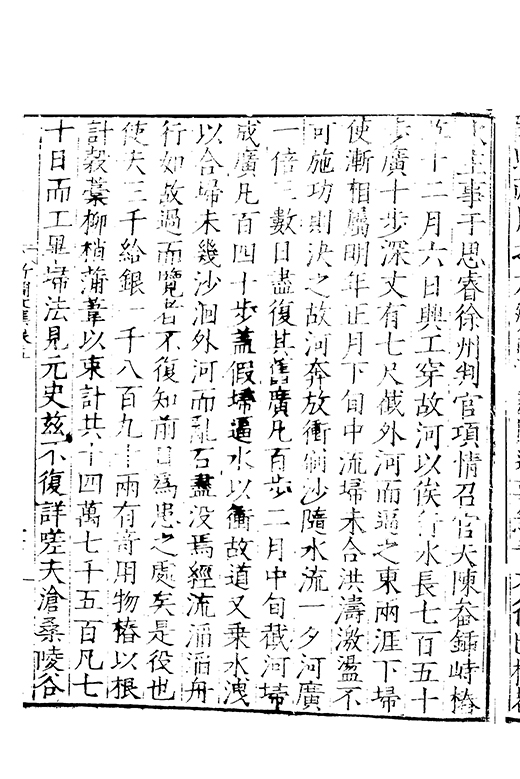 主事于思睿徐州判官項情召官夫陳畚鍤峙樁
十二月六日興工穿故河以俟行水長七百五十
步廣十步深丈有七尺截外河而逼之東兩涯下埽
使漸相屬明年正月下旬中流埽未合洪濤激盪不
可施功則決之故河奔放衝刷沙隨水流一夕河廣
一倍二數日盡復其舊廣凡百步二月中旬截河埽
成廣凡百四十步蓋假埽逼水以衝故道又乗水洩
以合埽未幾沙洄外河而亂石盡没焉經流滔滔舟
行如故過而覽者不復知前日為患之處矣是役也
使夫三千給銀一千八百九十兩有奇用物樁以根
計穀藁柳梢蒲葦以束計共十四萬七千五百凡七
十日而工畢埽法見元史兹不復詳嗟夫滄桑陵谷